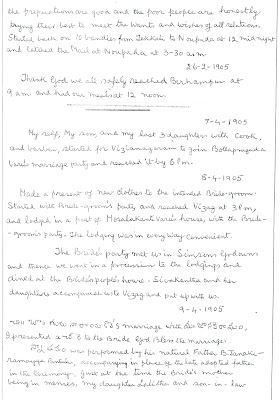 the preparations are good and the poor people are honestly
trying their best to meet the wants and wishes of all relations.
Started back on 10 bandies from Tekkali to Noupada at 12 midnight
and catched the Mail at Noupada at 3-30 a.m.
26-2-1905
Thank God we all safely reached Berhampur at
9 am and had our meals at 12 noon.
7-4-1905
My self, My son, and my last 3 daughters with Cook,
and barbar, started for Vizianagaram to join Bottapragada
Varu's marriage party and reached it by 6 p.m.
8-4-1905
Made a present of new clothes to the intended Bride-groom.
Started with Bride-groom's party, and reached Vizag at 3 P.m,
and lodged in a part of Mosalakanti Varu's house, with the Bride-
groom's party. The lodging was in every way Convenient.
The Bride's party met us in Simson's Godowns
and thence we went in a procession to the lodgings and
dined at the Bride's people's house. Sivakantha and her
daughters accompanied with Vizag and put up with us.
9-4-1905
marriage with
I presented a to the Bride God Bless the marriage.
was performed by his natural Father B. Janaki-
ramayya Pantulu, accompanying in place of the late adopted father
in the Ceremony. Just at the time the Bride's mother
being in menses, my daughter and son-in-law